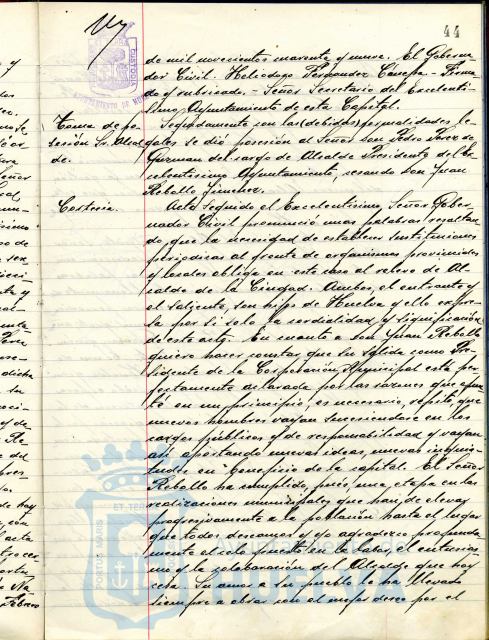 44
CUSTODIA
AYUNTAMIENTO DE HUE
de mil novecientos cuarenta y nueve. El Goberna-
dor Civil. Heliodoro Fernandez Canepa - Firma-
do y rubricado. - Señor Secretario del Excelenti-
simo Ayuntamiento de esta Capital.
Toma de po-
sesión Sr. Alcal-
de.
Seguidamente con las debidas formalidades le-
gales se dió posesión al Señor Don Pedro Perez de
Guzman del cargo de Alcalde Presidente del Ex-
celentisimo Ayuntamiento, cesando Don Juan
Rebollo Jimenez.
Cortesia.
Acto seguido el Excelentisimo Señor Gober-
nador Civil pronunció unas palabras resaltan-
do que la necesidad de establecer sustituciones
periodicas al frente de organismos provinciales
y locales obliga en este caso al relevo de Al-
calde de la Ciudad. Ambos, el entrante y
el saliente, son hijos de Huelva y ello expre-
sa por si solo la cordialidad y significación
de este acto. En cuanto a Don Juan Rebollo
quiero hacer constar que su salida como Pre-
sidente de la Corporación Municipal está per-
fectamente aclarada por las razones que apun-
té en un principio; es necesario, repito, que
nuevos hombres vayan sucediendose en los
cargos públicos y de responsabilidad y vayan
asi aportando nuevas ideas, nuevas inquie-
tudes en beneficio de la capital. El Señor
Rebollo ha cumplido, pues, una etapa en las
realizaciones municipales que han de elevar
progresivamente a la población hasta el lugar
que todos deseamos y yo agradezco profunda-
mente el celo puesto en la labor, el entusias-
mo y la colaboración del Alcalde que hoy
cesa. Su amor a su pueblo le ha llevado
siempre a obrar con el mejor deseo por el
PORTUS MARIS
ET TERRAE
Ayuntamiento de
HUELVA